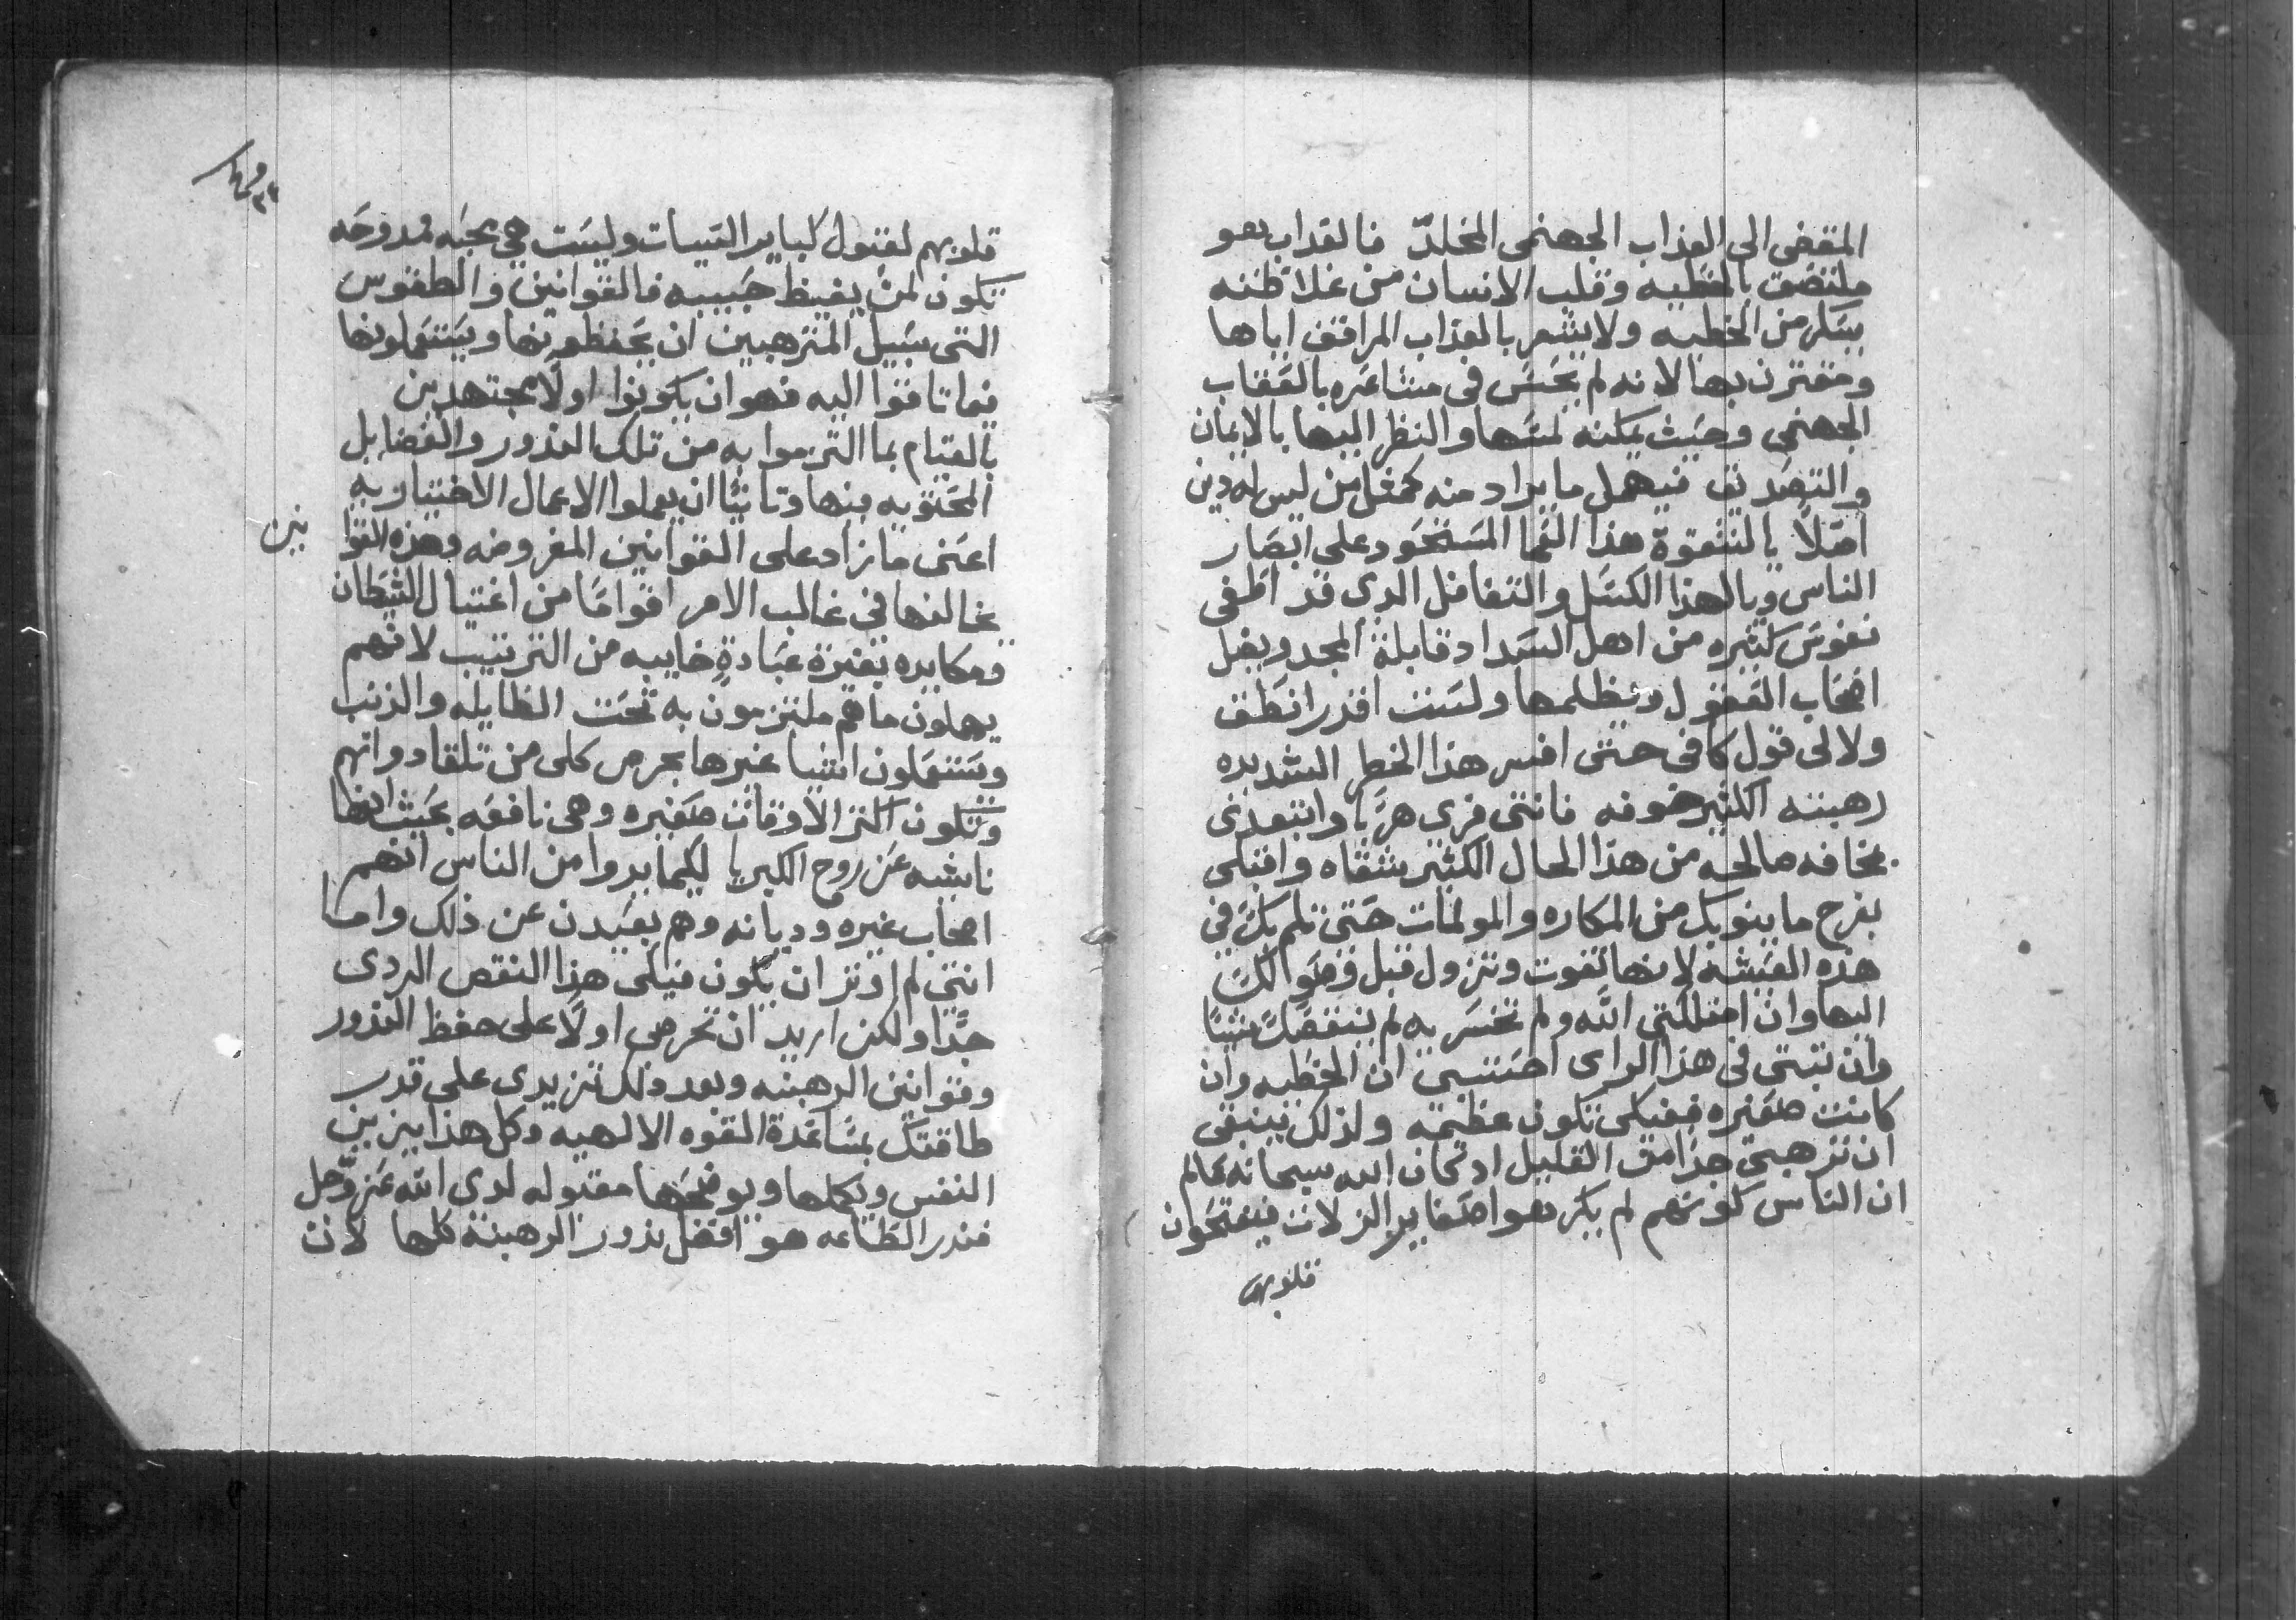 المفضى الى العذاب الجهنمى المخلدّ فالعذاب هو
ملتصق بالخطيه وقلب الانسان من غلاظته
يسكر من الخطيه ولا يشعر بالعذاب المرافق اياها
ومقترن بها لانه لم يحس فى مشاعره بالعقاب
الجهنمى وحيث يمكنه لمسها والنظر اليها بالايمان
والتصديق فيهمل ما يراد منه كمغفل من ليس له دين
اصلاً يا لشقوة هذا العما المستحود على ابصار
الناس ويا لهذا الكسل والتغافل الدى قد اطفى
نفوس كثيره من اهل السداد قابلة المجد ويغل
اصحاب العقول ويظلمها ولست اقدر انطق
ولا لى قول كافى حتى افسر هذا الخطر الشديده
رهبته الكثير خوفه فاننى فرى هربا وابتعدى
بمخافه صالحه من هذا الحال الكثير شقاه واقبلى
بفرح ما ينوبك من المكاره والمولمات حتى تلم بك فى
هذه العيشه لانها تفوت وتزول قبل وصولك
اليها وان امتلكتى الله ولم تخسريه لم ينقصك شيئا
وان ثبتى فى هذا الراى احتسبى ان الخطيه وان
كانت صغيره ففيكى تكون عظيمه ولذلك ينبغى
ان ترهبى جدا من القليل اد كان الله سبحانه عالم
ان الناس لكونهم لم يكرهوا صغاير الزلات فيفتحون
قلوبهم
قلوبهم لقبول كباير السيات وليست هى محبه ممدوحه
تكون لمن يغيظ حبيبه فالقوانين والطقوس
التى سبيل المترهبين ان يحفظونها ويستعملونها
فما تاقوا اليه فهو ان يكونوا اولاً مجتهدين
بالقيام بما التزموا به من تلك الندور والفضايل
المحتويه فيها وثانيًا ان يعملوا الاعمال الاختياريه
اعنى ما زاد على القوانين المفروضه وهذه القوا
نين
يخالفها فى غالب الامر اقوامًا من اغتيال الشيطان
ومكايده بغيرة عبادةٍ خاييه من الترتيب لانهم
يهملون ما هم ملتزمون به تحت الطايله والذنب
ويستعملون اشيا غيرها بحرص كلى من تلقا دواتهم
وتكون اكثر الاوقات صغيره وهى نافعه بحيث انها
ناشيه عن روح الكبريا لكيما يروا من الناس انهم
اصحاب غيره وديانه وهم بعيدن عن ذلك واما
اننى لم اوثر ان يكون فيكى هذا النقص الردى
جدًا ولكن اريد ان تحرصى اولاً على حفظ الندور
وقوانين الرهبنه وبعد ذلك تزيدى على قدر
طاقتك بمساعدة القوه الالهيه وكل هذا يزين
النفس ويكملها ويوضحها مقبوله لدى الله عز وجل
فندر الطاعه هو افضل ندور الرهبنه كلها لان